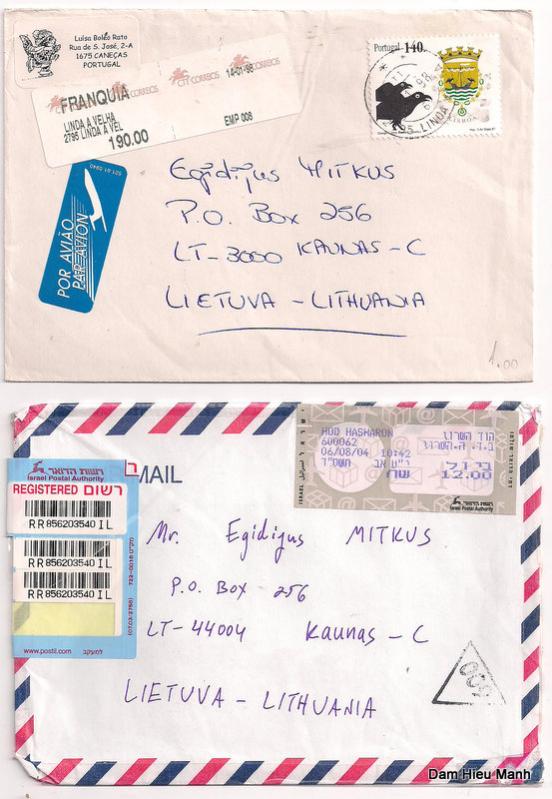 Luisa Boléo Rato
Rua de S. José, 2-A
1675 CANEÇAS
PORTUGAL
CTT CORREIOS
14-01-98
FRANQUIA
LINDA A VELHA
2795 LINDA A VEL
190.00
EMP 008
Portugal 140.
LISBOA
2795 LINDA
521 01 0940
POR AVIÃO
PAR AVION
Egidijus MITKUS
P.O. Box 256
LT-3000 KAUNAS-C
LIETUVA - LITHUANIA
1.00
MAIL
רשות הדואר
Israel Postal Authority
REGISTERED רשום
RR 856203540 IL
RR 856203540 IL
RR 856203540 IL
www.postil.com למעקב
HOD HASHARON
600062
06/08/04 10:42
הוד השרון
12.00
Israel Postal Authority
Mr. Egidijus MITKUS
P.O. Box 256
LT-44004 Kaunas - C
LIETUVA - LITHUANIA
009
Dam Hieu Manh